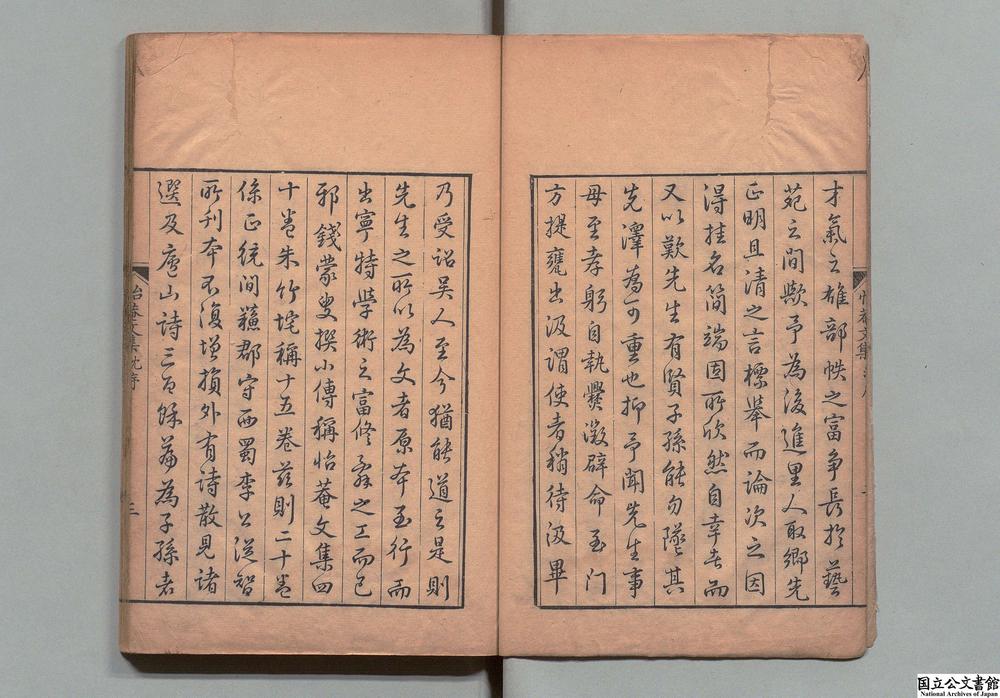 才氣之雄部帙之富爭長於藝
苑之間歟予為後進里人取鄉先
正明且清之言標舉而論次之因
得挂名簡端固所欣然自幸者而
又以歎先生有賢子孫能勿墜其
先澤為可重也抑予聞先生事
母至孝躬自執爨徵辟命至門
方提甕出汲謂使者稍待汲畢
乃受詔吳人至今猶能道之是則
先生之所以為文者原本至行而
出寧特學術之富修辭之工而已
邪錢蒙叟撰小傳稱怡菴文集四
十卷朱竹垞稱十五卷茲則二十卷
係正統間蘇郡守西蜀李公從智
所刊本不復增損外有詩散見諸
選及廬山詩三百餘篇為子孫者
怡菴文集沈序
三
国立公文書館
National Archives of Japan